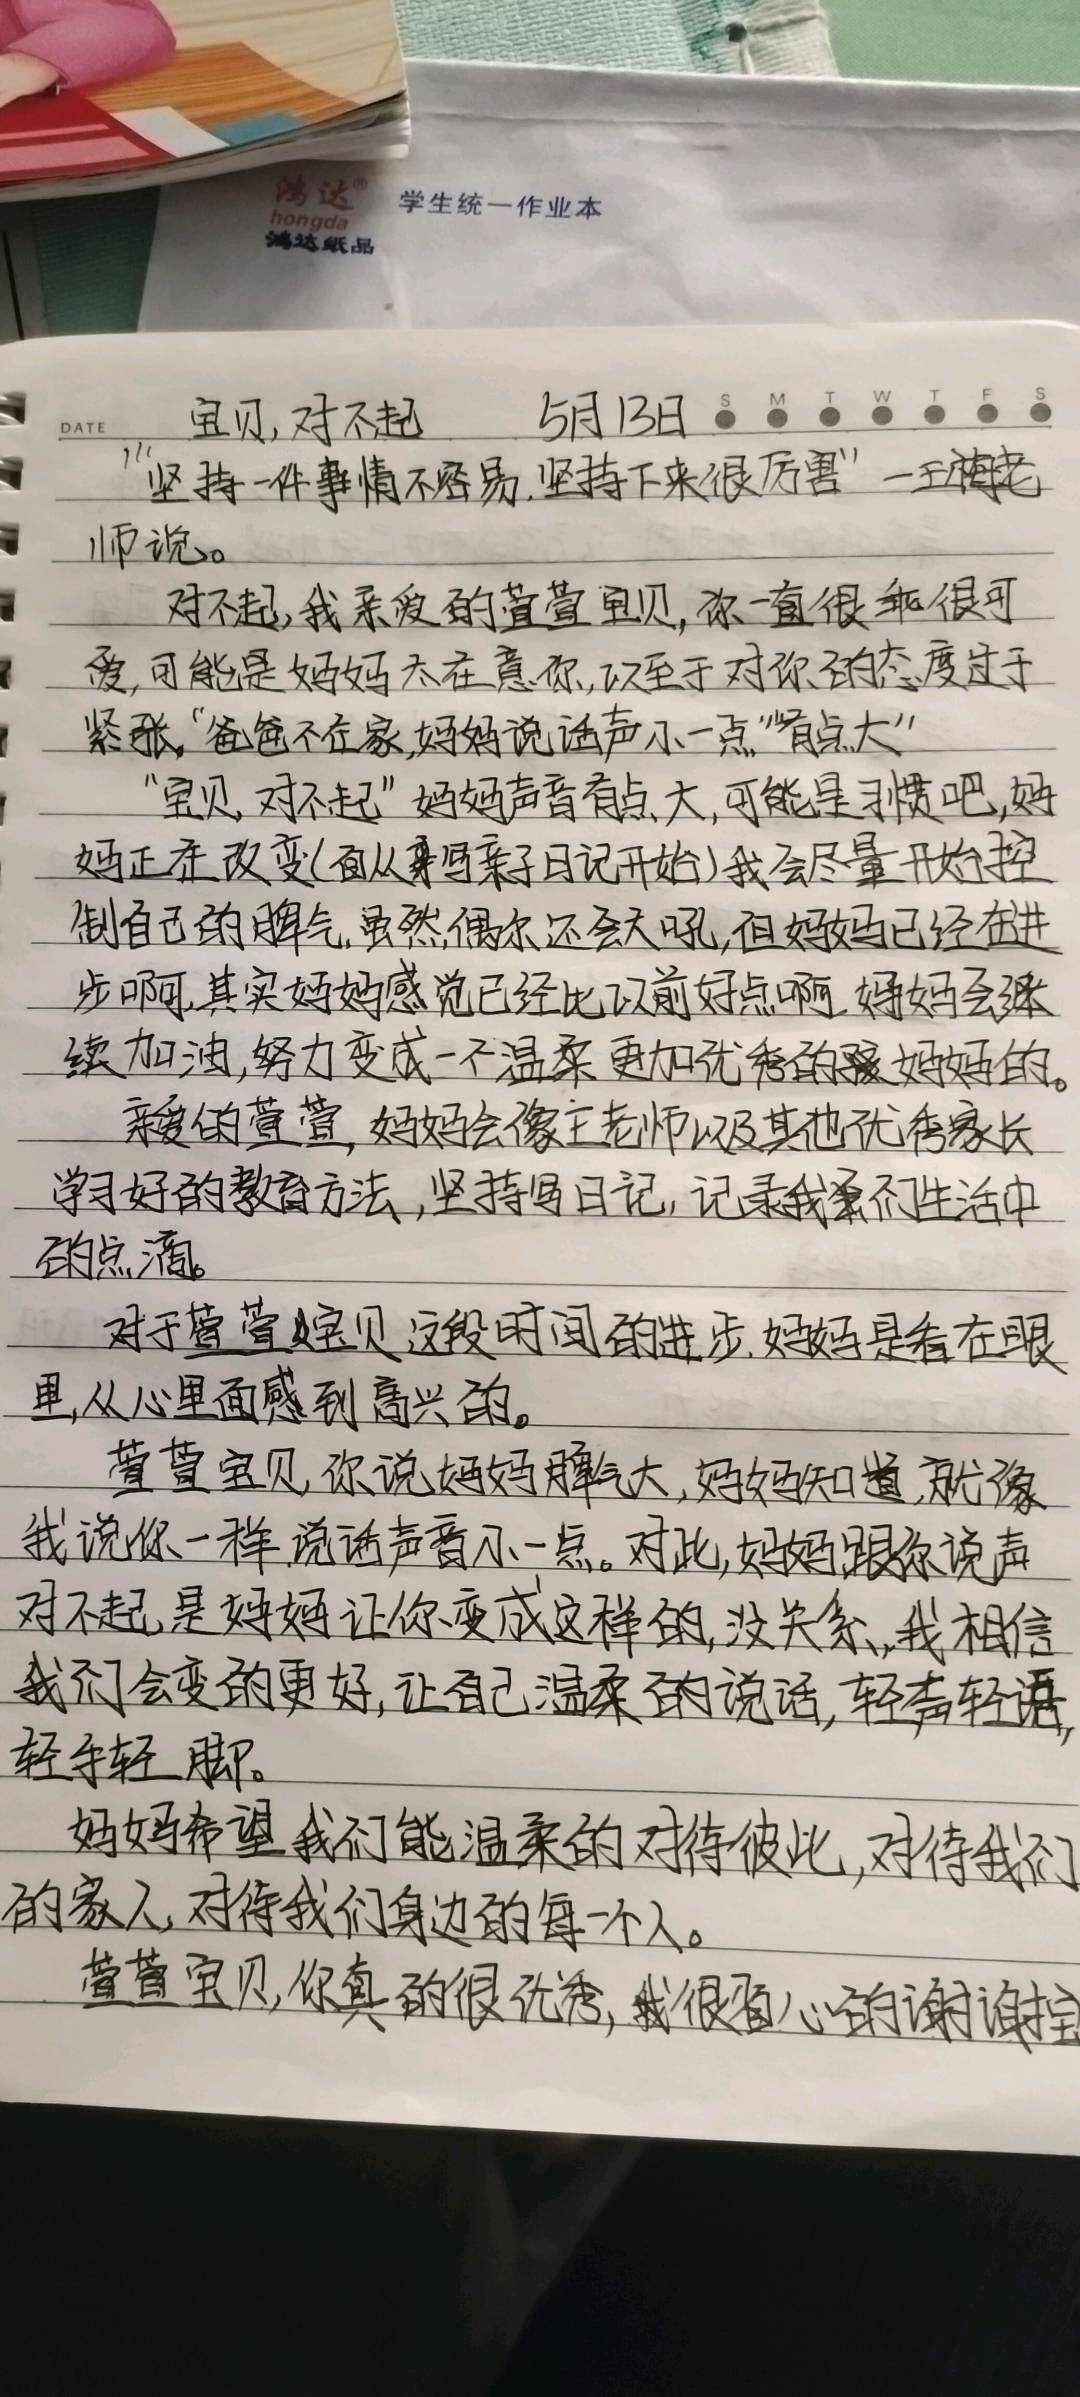 鸿达®
hongda
鸿达纸品
学生统一作业本
DATE 宝贝,对不起 5月13日 S M T W T F S
"坚持一件事情不容易,坚持下来很厉害"一王梅老
师说。
对不起,我亲爱的萱萱宝贝,你一直很乖很可
爱,可能是妈妈太在意你,以至于对你的态度过于
紧张,"爸爸不在家,妈妈说话声小一点""有点大"
"宝贝,对不起"妈妈声音有点大,可能是习惯吧,妈
妈正在改变(自从写亲子日记开始)我会尽量开始控
制自己的脾气,虽然偶尔还会大吼,但妈妈已经在进
步啊,其实妈妈感觉已经比以前好点啊,妈妈会继
续加油,努力变成一个温柔更加优秀的妈妈的。
亲爱的萱萱,妈妈会像王老师以及其他优秀家长
学习好的教育方法,坚持写日记,记录我们生活中
的点滴。
对于萱萱宝贝这段时间的进步,妈妈是看在眼
里,从心里面感到高兴的。
萱萱宝贝,你说妈妈脾气大,妈妈知道,就像
我说你一样,说话声音小一点。对此,妈妈跟你说声
对不起,是妈妈让你变成这样的,没关系,我相信
我们会变的更好,让自己温柔的说话,轻声轻语,
轻手轻脚。
妈妈希望我们能温柔的对待彼此,对待我们
的家人,对待我们身边的每一个人。
萱萱宝贝,你真的很优秀,我很留心的谢谢宝